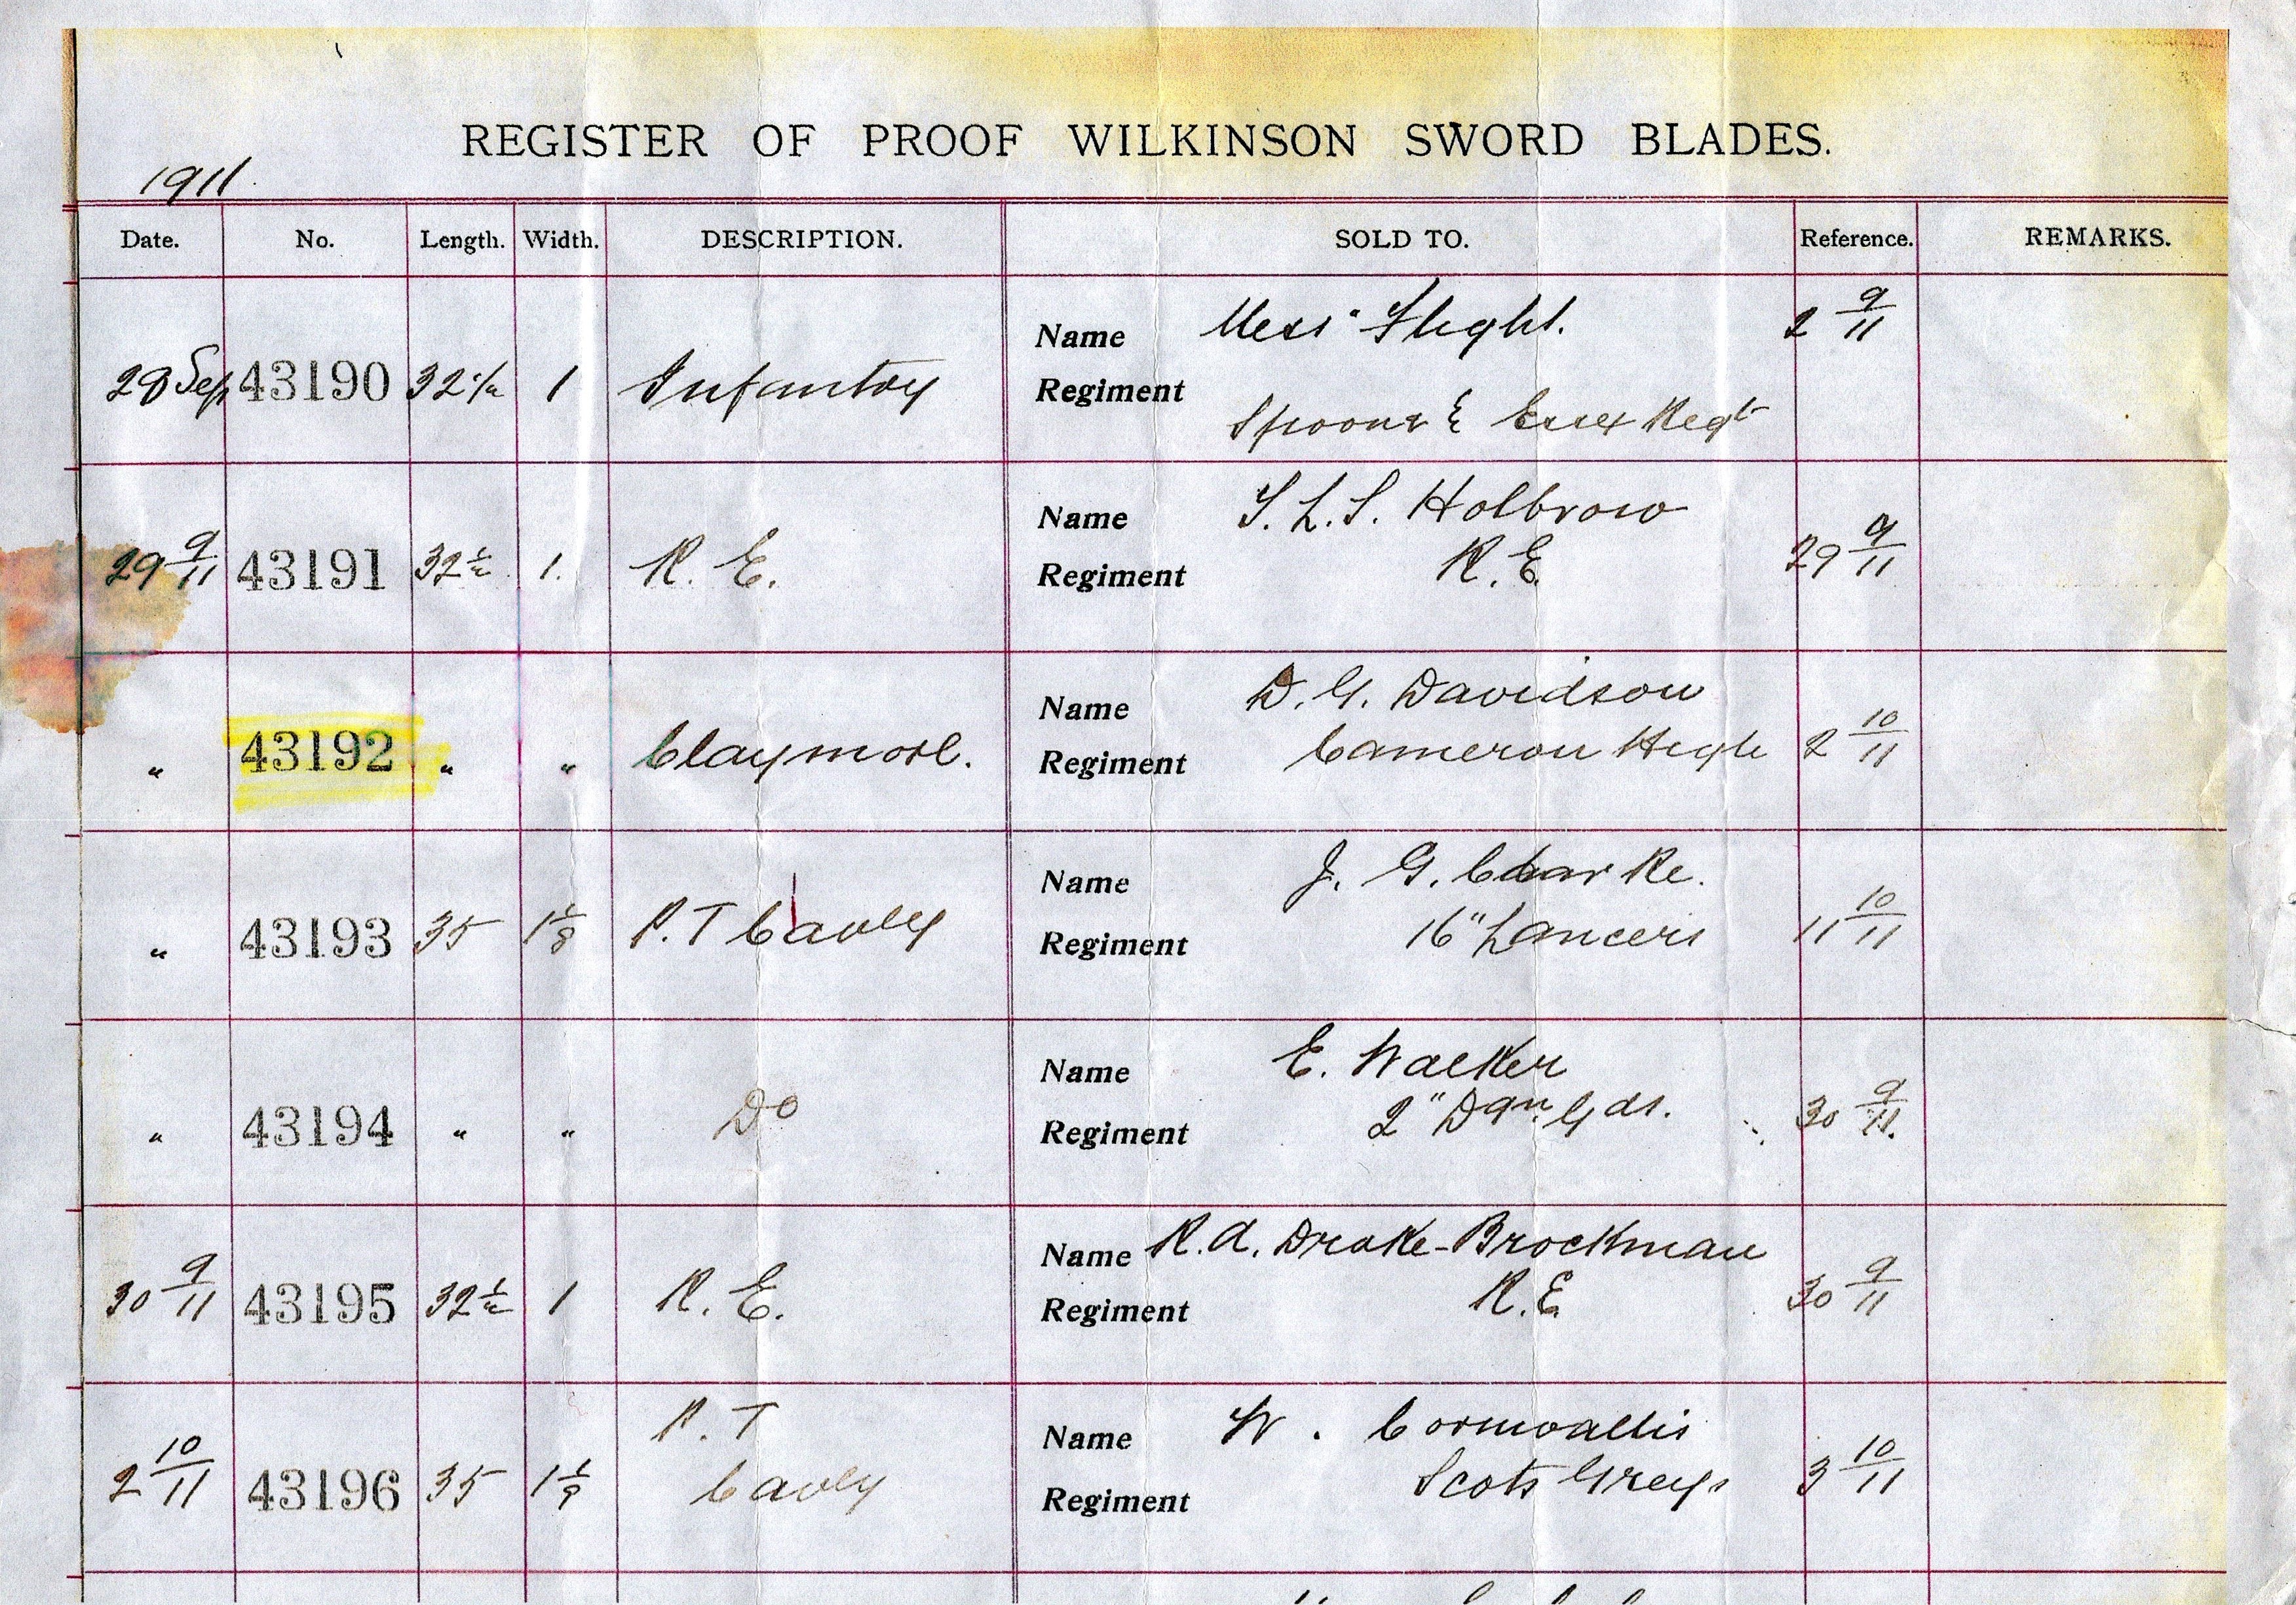 REGISTER OF PROOF WILKINSON SWORD BLADES.
1911.
Date. No. Length. Width. DESCRIPTION. SOLD TO. Reference. REMARKS.
Name Messrs Flight. 2 9/11
28 Sep 43190 32 1/2 1 Infantry Regiment
Spooner & Essex Regt
Name S. L. S. Holbrow
29 9/11 43191 32 1/2 1. R. E. Regiment R. E. 29 9/11
Name D. G. Davidson
" 43192 " " Claymore. Regiment Cameron High 2 10/11
Name J. G.
" 43193 35 1 1/8 P. T Cavly Regiment 16" Lancers 11 10/11
Name E. Walker
" 43194 " " Do Regiment 2" Dgn. Gds. 30 9/11.
Name R. A. Drake-Brockman
30 9/11 43195 32 1/2 1 R. E. Regiment R. E. 30 9/11
P. T Name W. Cornwallis
2 10/11 43196 35 1 1/8 Cavly Regiment Scots Greys 3 10/11